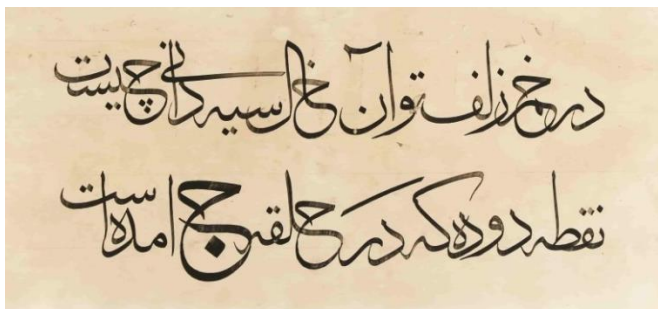 در خم زلف تو آن خال سیه دانی چیست
نقطه دوده که در حلقه ج امده است